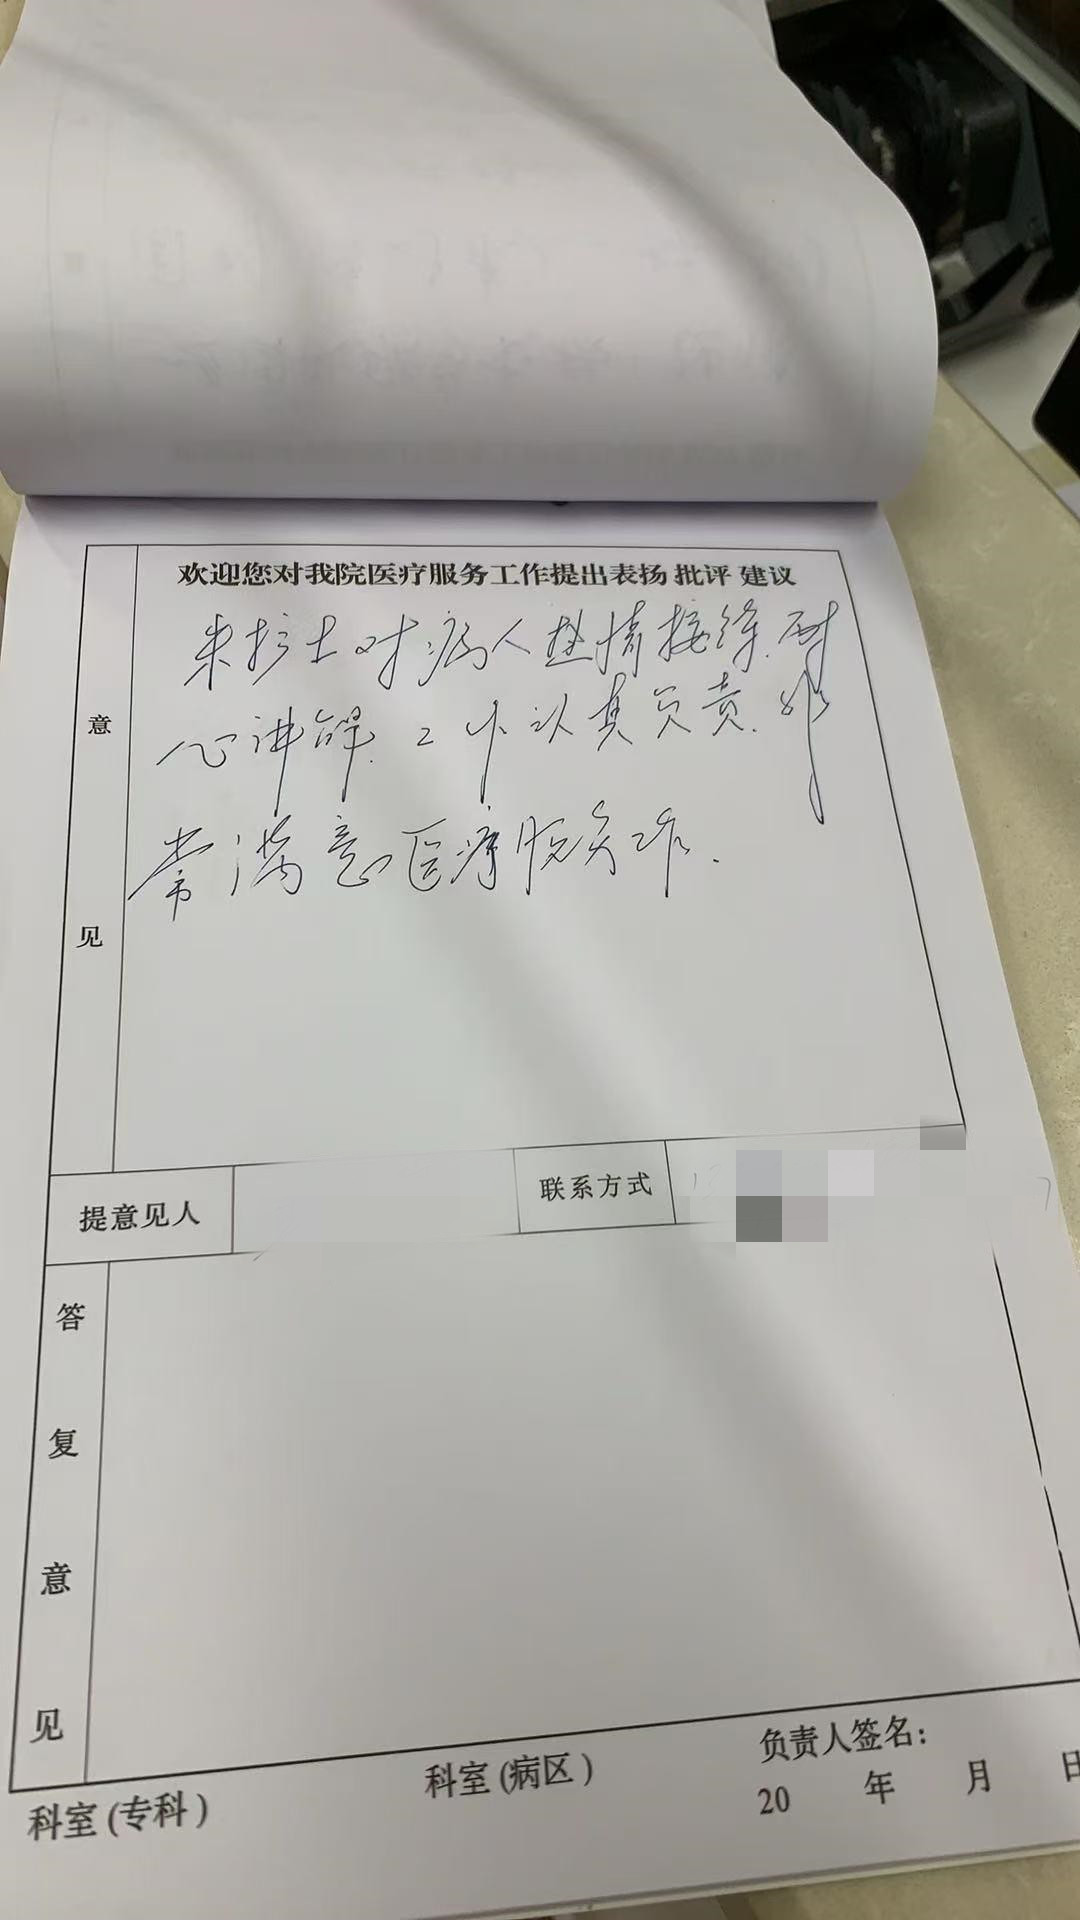 欢迎您对我院医疗服务工作提出表扬 批评 建议
朱护士对病人热情接待.耐
心讲解.工作认真负责.非
常满意医疗服务工作.
意
见
提意见人
联系方式
答
复
意
见
科室(专科)
科室(病区)
负责人签名:
20 年 月 日